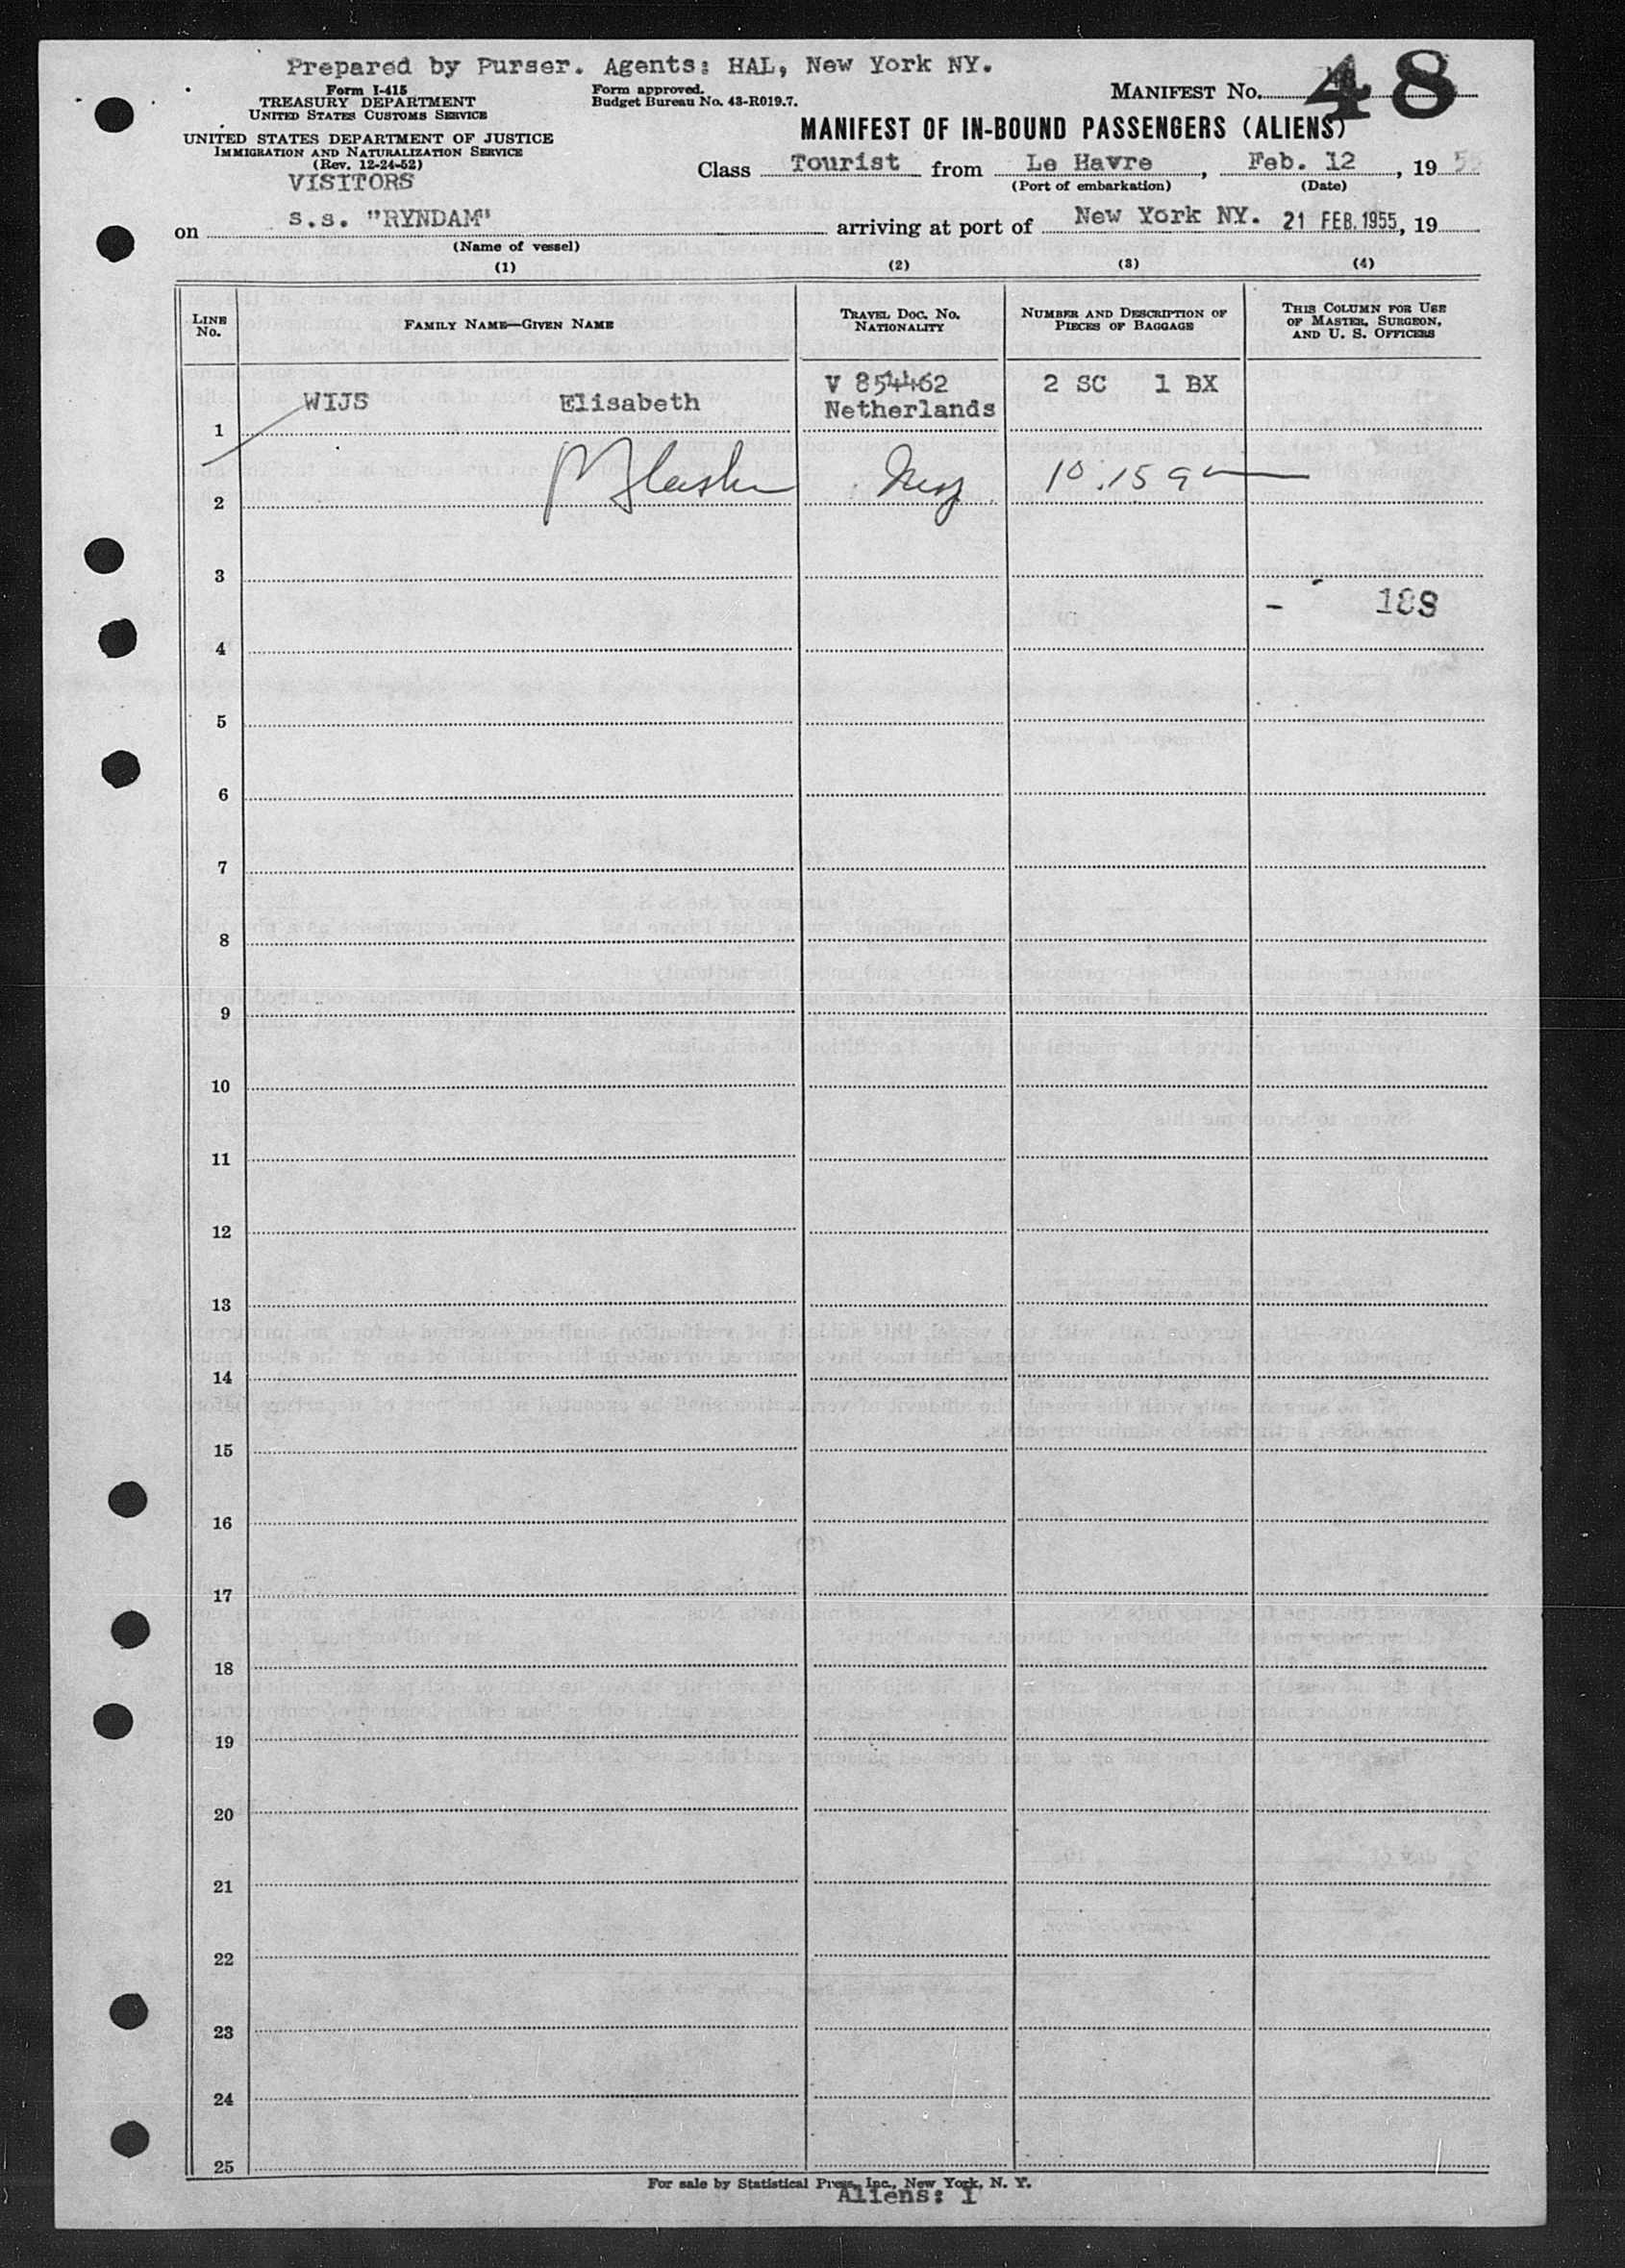 Prepared by Purser. Agents: HAL, New York NY.
Form I-415
TREASURY DEPARTMENT
UNITED STATES CUSTOMS SERVICE
Form approved.
Budget Bureau No. 43-R019.7.
MANIFEST No. 48
UNITED STATES DEPARTMENT OF JUSTICE
IMMIGRATION AND NATURALIZATION SERVICE
(Rev. 12-24-52)
VISITORS
MANIFEST OF IN-BOUND PASSENGERS (ALIENS)
Class Tourist from Le Havre, Feb. 12, 1955
(Port of embarkation) (Date)
on s.s. "RYNDAM" arriving at port of New York NY. 21 FEB. 1955, 19
(Name of vessel)
(1) (2) (3) (4)
LINE No. FAMILY NAME—GIVEN NAME TRAVEL DOC. No. NATIONALITY NUMBER AND DESCRIPTION OF PIECES OF BAGGAGE THIS COLUMN FOR USE OF MASTER, SURGEON, AND U. S. OFFICERS
1 WIJS Elisabeth V 854462 Netherlands 2 SC 1 BX
2 10:15 am
3
- 188
4
5
6
7
8
9
10
11
12
13
14
15
16
17
18
19
20
21
22
23
24
25
For sale by Statistical Press, Inc., New York, N. Y.
Aliens: 1